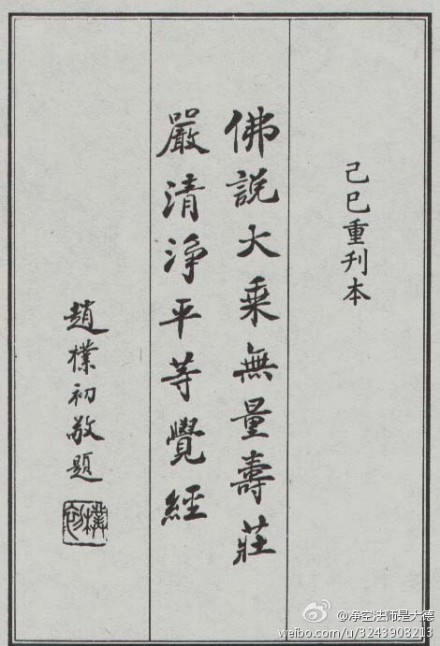 己巳重刊本
佛說大乘無量壽莊
嚴清淨平等覺經
趙樸初敬題
樸初
@净空法师是大德
weibo.com/u/3243908213